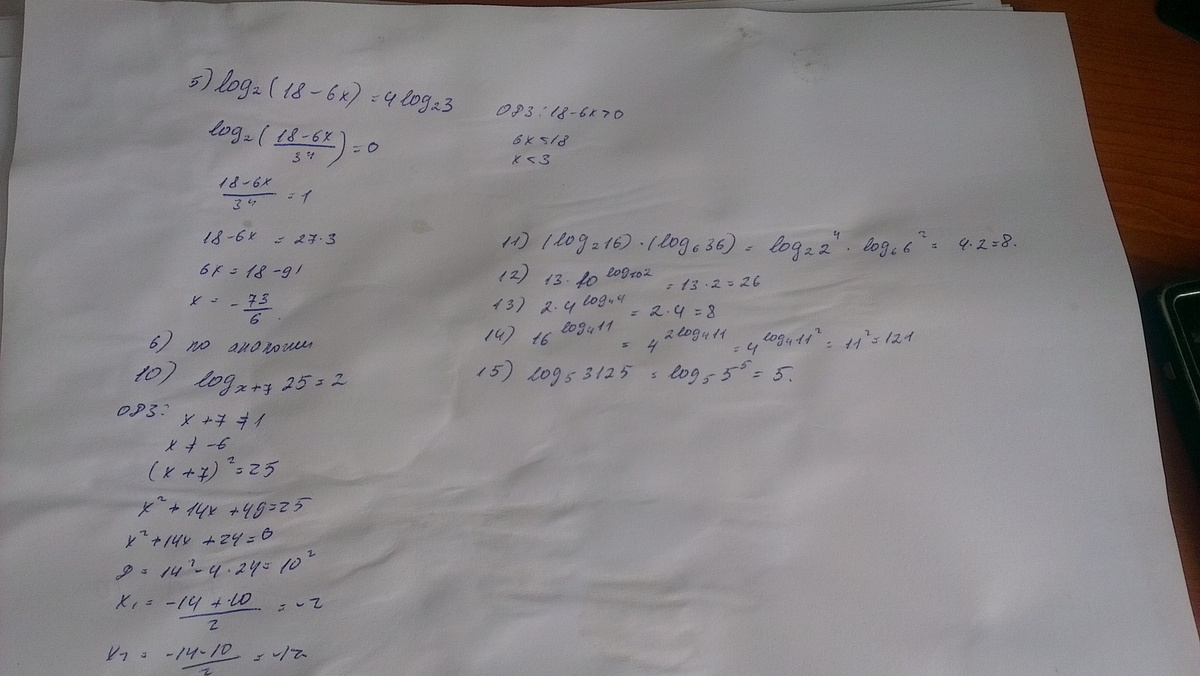 5) log₂(18-6x)=4log₂3
log₂((18-6x)/3⁴)=0
(18-6x)/3⁴=1
18-6x=27·3
6x=18-91
x=-73/6.
6) по аналогии
10) log_{x+7} 25=2
ОВЗ: x+7≠1
x≠-6
(x+7)²=25
x²+14x+49=25
x²+14x+24=0
D=14²-4·24=10²
x₁=(-14+10)/2=-2
x₂=(-14-10)/2=-12
ОВЗ: 18-6x>0
6x<18
x<3
11) (log₂16)·(log₆36)=log₂2⁴·log₆6²=4·2=8.
12) 13·10^{log₁₀2}=13·2=26
13) 2·4^{log₄4}=2·4=8
14) 16^{log₄11}=4^{2log₄11}=4^{log₄11²}=11²=121
15) log₅3125=log₅5⁵=5.